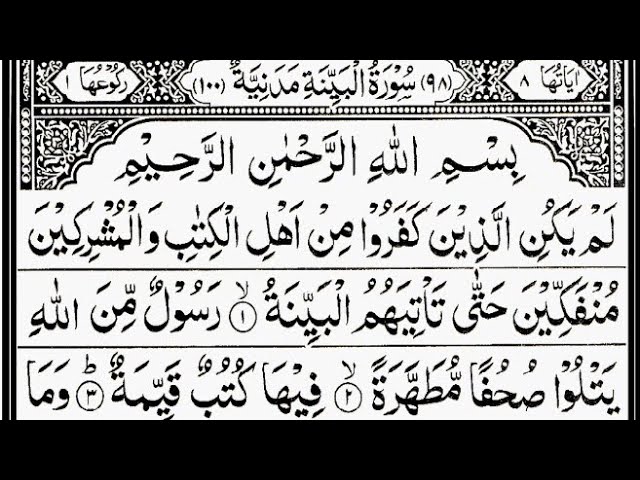 اٰیَاتُهَا ۸ (۹۸) سُوْرَةُ الْبَیِّنَةِ مَدَنِیَّةٌ (۱۰۰) رُکُوْعُهَا ۱
بِسْمِ اللّٰهِ الرَّحْمٰنِ الرَّحِیْمِ
لَمْ یَکُنِ الَّذِیْنَ کَفَرُوْا مِنْ اَهْلِ الْکِتٰبِ وَالْمُشْرِکِیْنَ
مُنْفَکِّیْنَ حَتّٰی تَاْتِیَهُمُ الْبَیِّنَةُ ۙ﴿۱﴾ رَسُوْلٌ مِّنَ اللّٰهِ
یَتْلُوْا صُحُفًا مُّطَهَّرَةً ۙ﴿۲﴾ فِیْهَا کُتُبٌ قَیِّمَةٌ ؕ﴿۳﴾ وَمَا